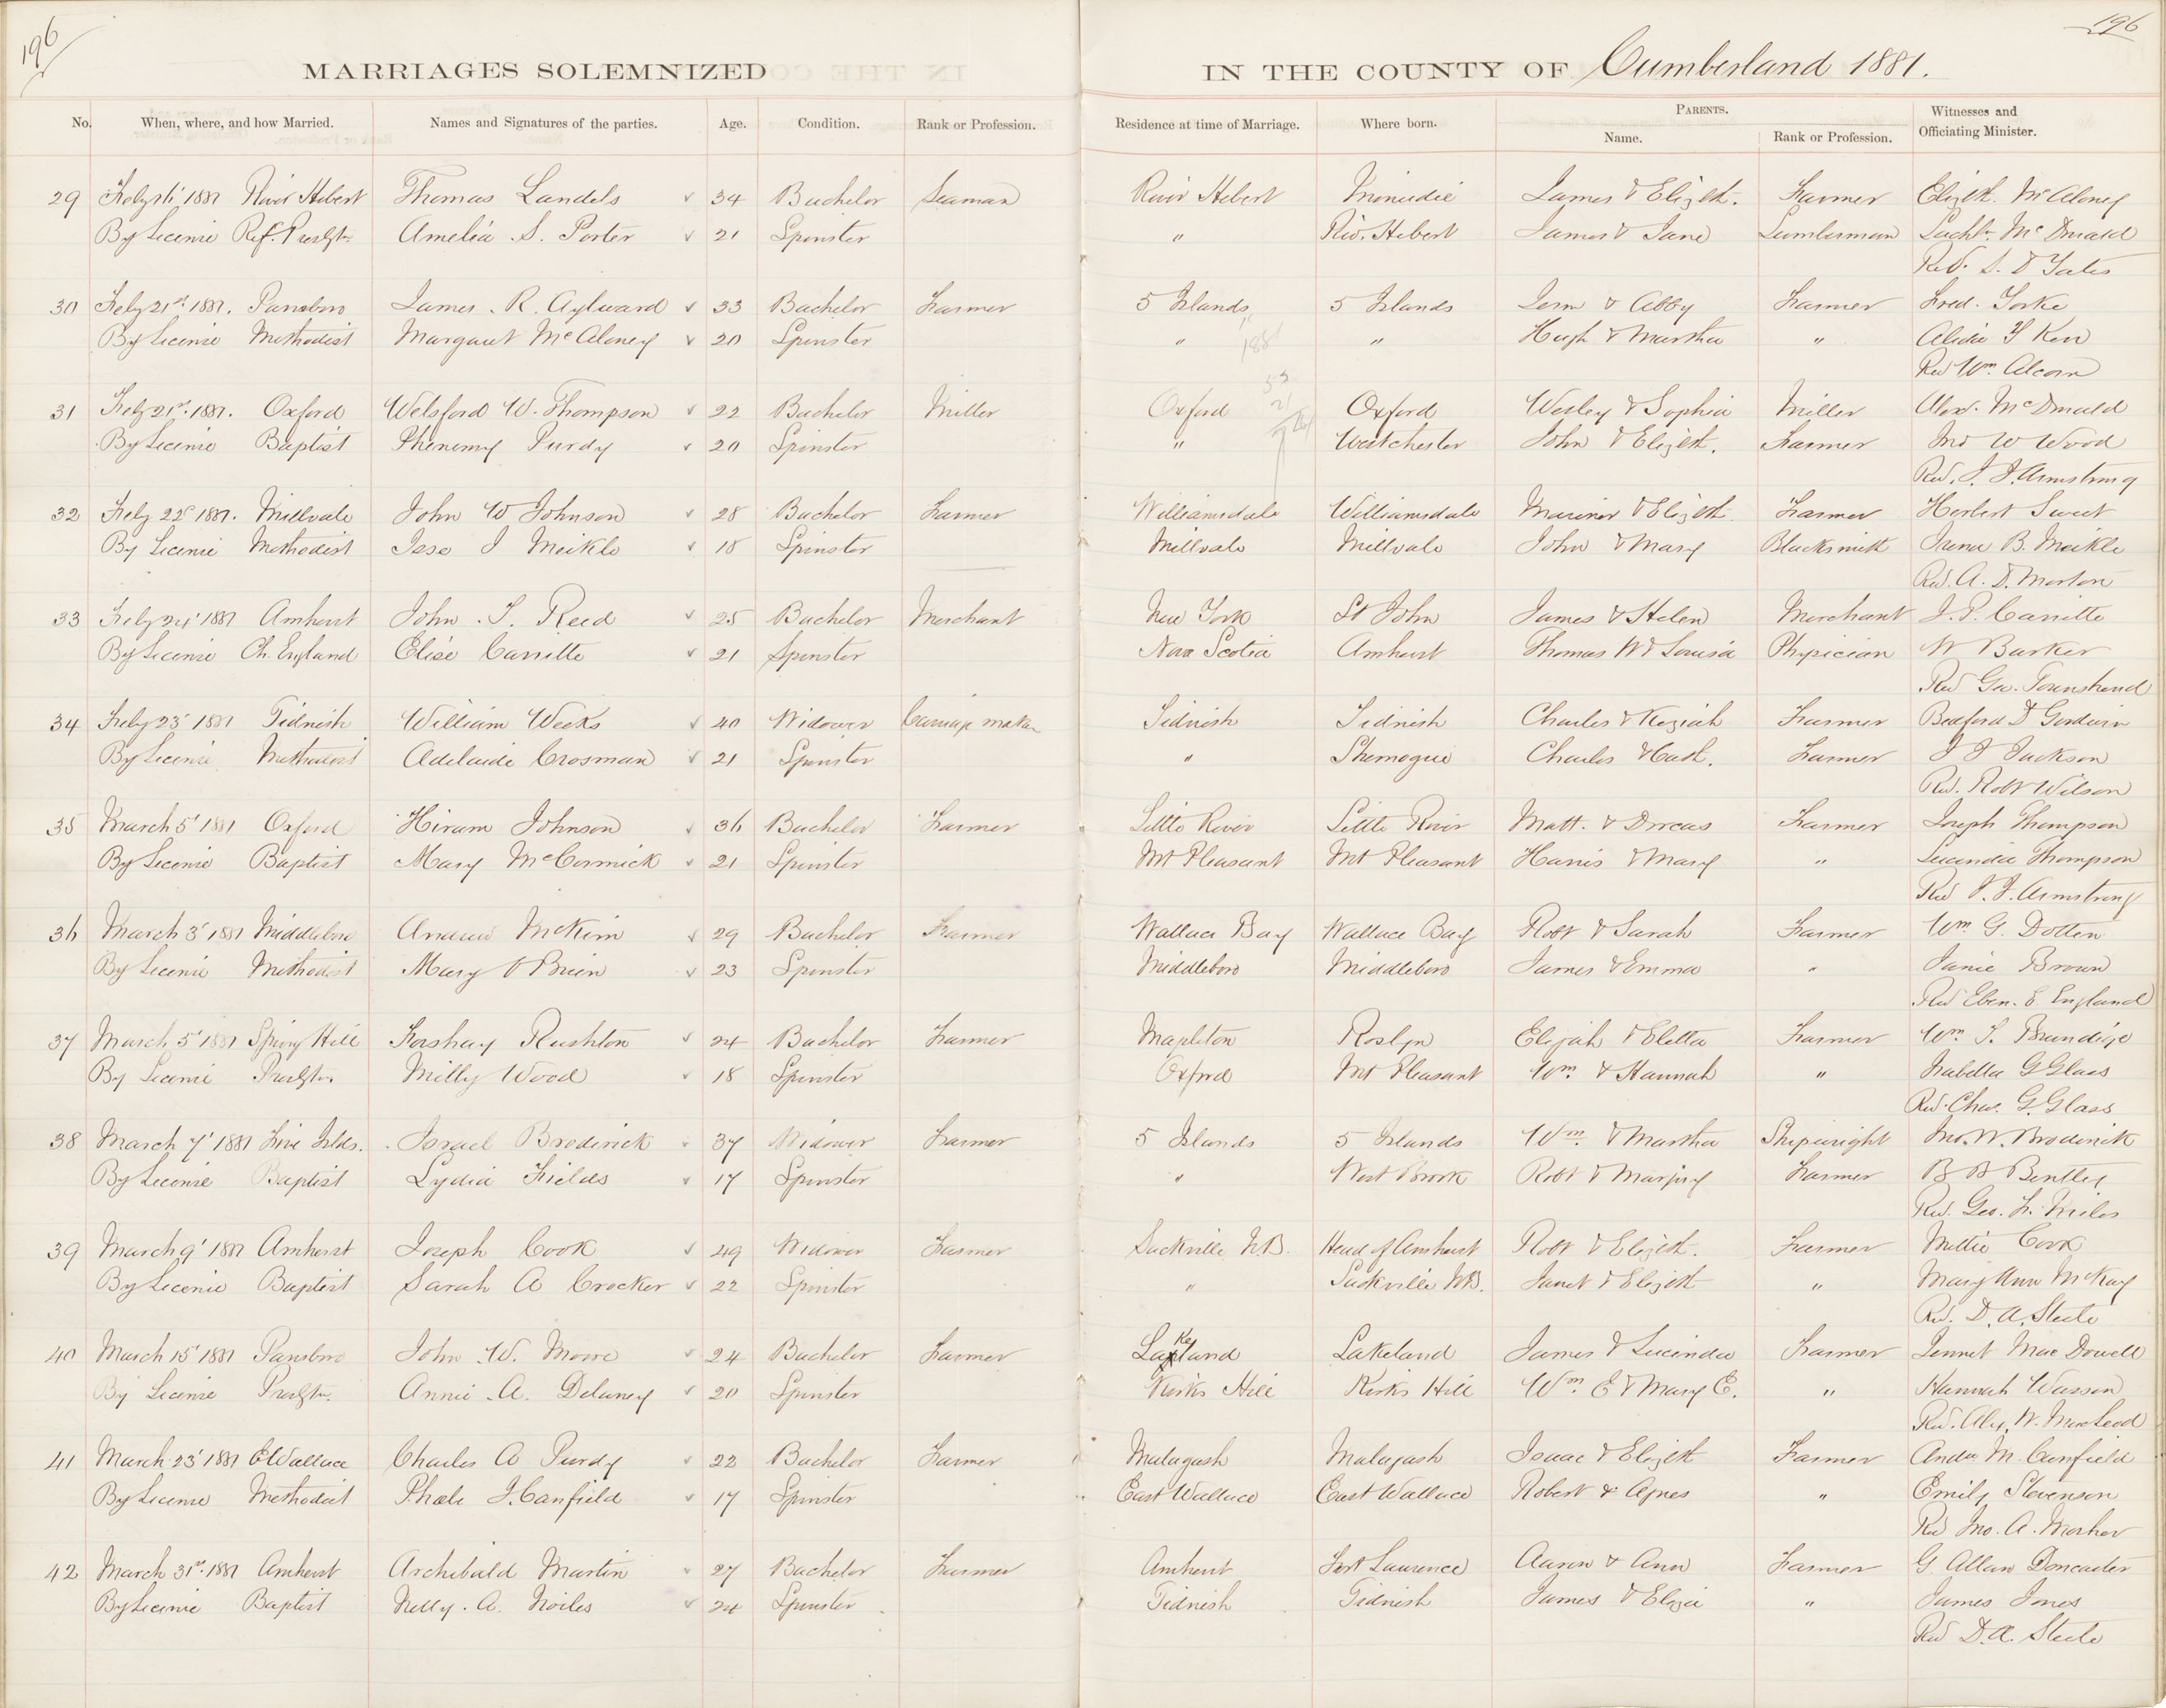 196
196
MARRIAGES SOLEMNIZED IN THE COUNTY OF Cumberland 1881.
No. When, where, and how Married. Names and Signatures of the parties. Age. Condition. Rank or Profession. Residence at time of Marriage. Where born. PARENTS. Name. Rank or Profession. Witnesses and Officiating Minister.
29 Feby 16' 1881 River Hebert Thomas Landels 34 Bachelor Seaman River Hebert Minudie James & Elizth. Farmer Elizth. McAloney
By License Ref. Presbtn. Amelia S. Porter 21 Spinster " Riv. Hebert James & Jane Lumberman Lachn. McDonald
Rev. S. D Yates
30 Feby 21st 1881. Parrsboro James R. Aylward 33 Bachelor Farmer 5 Islands 5 Islands Jerm & Abby Farmer Fred. Yorke
By License Methodist Margaret McAloney 20 Spinster " " Hugh & Martha " Alicia Kerr
Rev Wm. Alcorn
31 Feby 21st 1881. Oxford Welsford W. Thompson 22 Bachelor Miller Oxford Oxford Wesley & Sophia Miller Alexr. McDonald
By License Baptist Phenemy Purdy 20 Spinster " Westchester John & Elizth. Farmer Jno W Wood
Rev. J. J. Armstrong
32 Feby 22d 1881. Millvale John W Johnson 28 Bachelor Farmer Williamsdale Williamsdale Mariner & Elizth. Farmer Herbert Sweet
By License Methodist J Meikle 18 Spinster Millvale Millvale John & Mary Blacksmith Irena B. Meikle
Rev. A. D. Morton
33 Feby 24' 1881 Amherst John S. Reed 25 Bachelor Merchant New York St John James & Helen Merchant J. P. Carritte
By License Ch. England Elise Carritte 21 Spinster Nova Scotia Amherst Thomas W & Louisa Physician W Barker
Rev Geo. Townshend
34 Feby 23' 1881 Tidnish William Weeks 40 Widower Carriage maker Tidnish Tidnish Charles & Keziah Farmer Bedford D
By License Methodist Adelaide Crosman 21 Spinster " Shemogue Charles & Cath. Farmer J J Jackson
Rev. Robt Wilson
35 March 5' 1881 Oxford Hiram Johnson 36 Bachelor Farmer Little River Little River Matt. & Dorcas Farmer Joseph Thompson
By License Baptist Mary McCormick 21 Spinster Mt Pleasant Mt Pleasant Harris & Mary " Lucinda Thompson
Rev J. J. Armstrong
36 March 3' 1881 Middleboro Andrew McKim 29 Bachelor Farmer Wallace Bay Wallace Bay Robt & Sarah Farmer Wm G. Dotten
By License Methodist Mary O Brien 23 Spinster Middleboro Middleboro James & Emma " Janie Brown
Rev Eben. E England
37 March 5' 1881 Spring Hill Forshay Rushton 24 Bachelor Farmer Mapleton Roslyn Elijah & Eletta Farmer Wm. S. Brundige
By License Presbtn. Milly Wood 18 Spinster Oxford Mt Pleasant Wm. & Hannah " Isabella G Glass
Rev. Chas. G. Glass
38 March 7' 1881 Five Islds. Israel Broderick 37 Widower Farmer 5 Islands 5 Islands Wm & Martha Shipwright Jno. W. Broderick
By License Baptist Lydia Fields 17 Spinster " West Brook Robt & Marjory Farmer B B Bentley
Rev. Geo. F. Miles
39 March 9' 1881 Amherst Joseph Cook 49 Widower Farmer Sackville N.B. Head of Amherst Robt & Elizth. Farmer Millie Cook
By License Baptist Sarah A Crocker 22 Spinster " Sackville N.B. Janet & Elizth " Mary Ann McKay
Rev. D. A. Steele
40 March 15' 1881 Parrsboro John W. Moore 24 Bachelor Farmer Lakeland Lakeland James & Lucinda Farmer Jennet MacDowell
By License Presbtn. Annie A. Delaney 20 Spinster Kirks Hill Kirks Hill Wm. E & Mary E. " Hannah Wasson
Rev. Alex. W. MacLeod
41 March 23' 1881 E Wallace Charles A Purdy 22 Bachelor Farmer Malagash Malagash Isaac & Elizth Farmer Andw M. Canfield
By License Methodist Phebe J. Canfield 17 Spinster East Wallace East Wallace Robert & Agnes " Emily Stevenson
Rev Jno. A. Mosher
42 March 31st 1881 Amherst Archibald Martin 27 Bachelor Farmer Amherst Fort Laurence Aaron & Ann Farmer G. Allan Doncaster
By License Baptist Nelly A. Noiles 24 Spinster Tidnish Tidnish James & Eliza " James Jones
Rev D. A. Steele